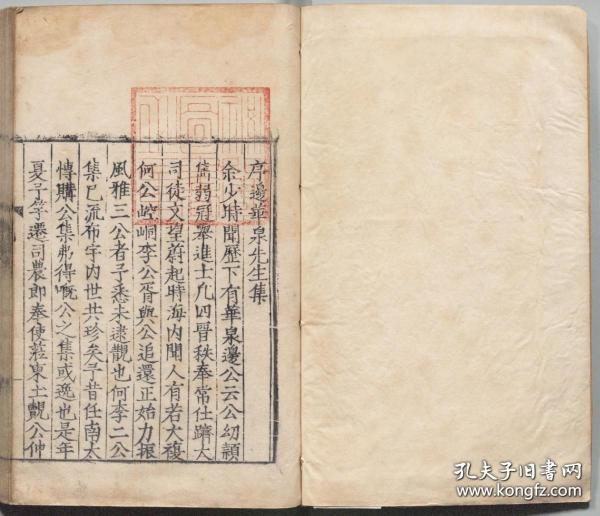 序邊華泉先生集
余少時聞歷下有華泉邊公云公幼穎
儁弱冠舉進士凡四晉秩奉常仕躋大
司徒文望蔚起時海内聞人有若大復
何公崆峒李公胥與公追還正始力振
風雅三公者予悉未逮觀也何李二公
集已流布宇内世共珍矣予昔任南太
愽購公集弗得嘅公之集或逸也是年
夏予學還司農郎奉使蒞東土覯公仲
孔夫子旧书网
www.kongfz.com